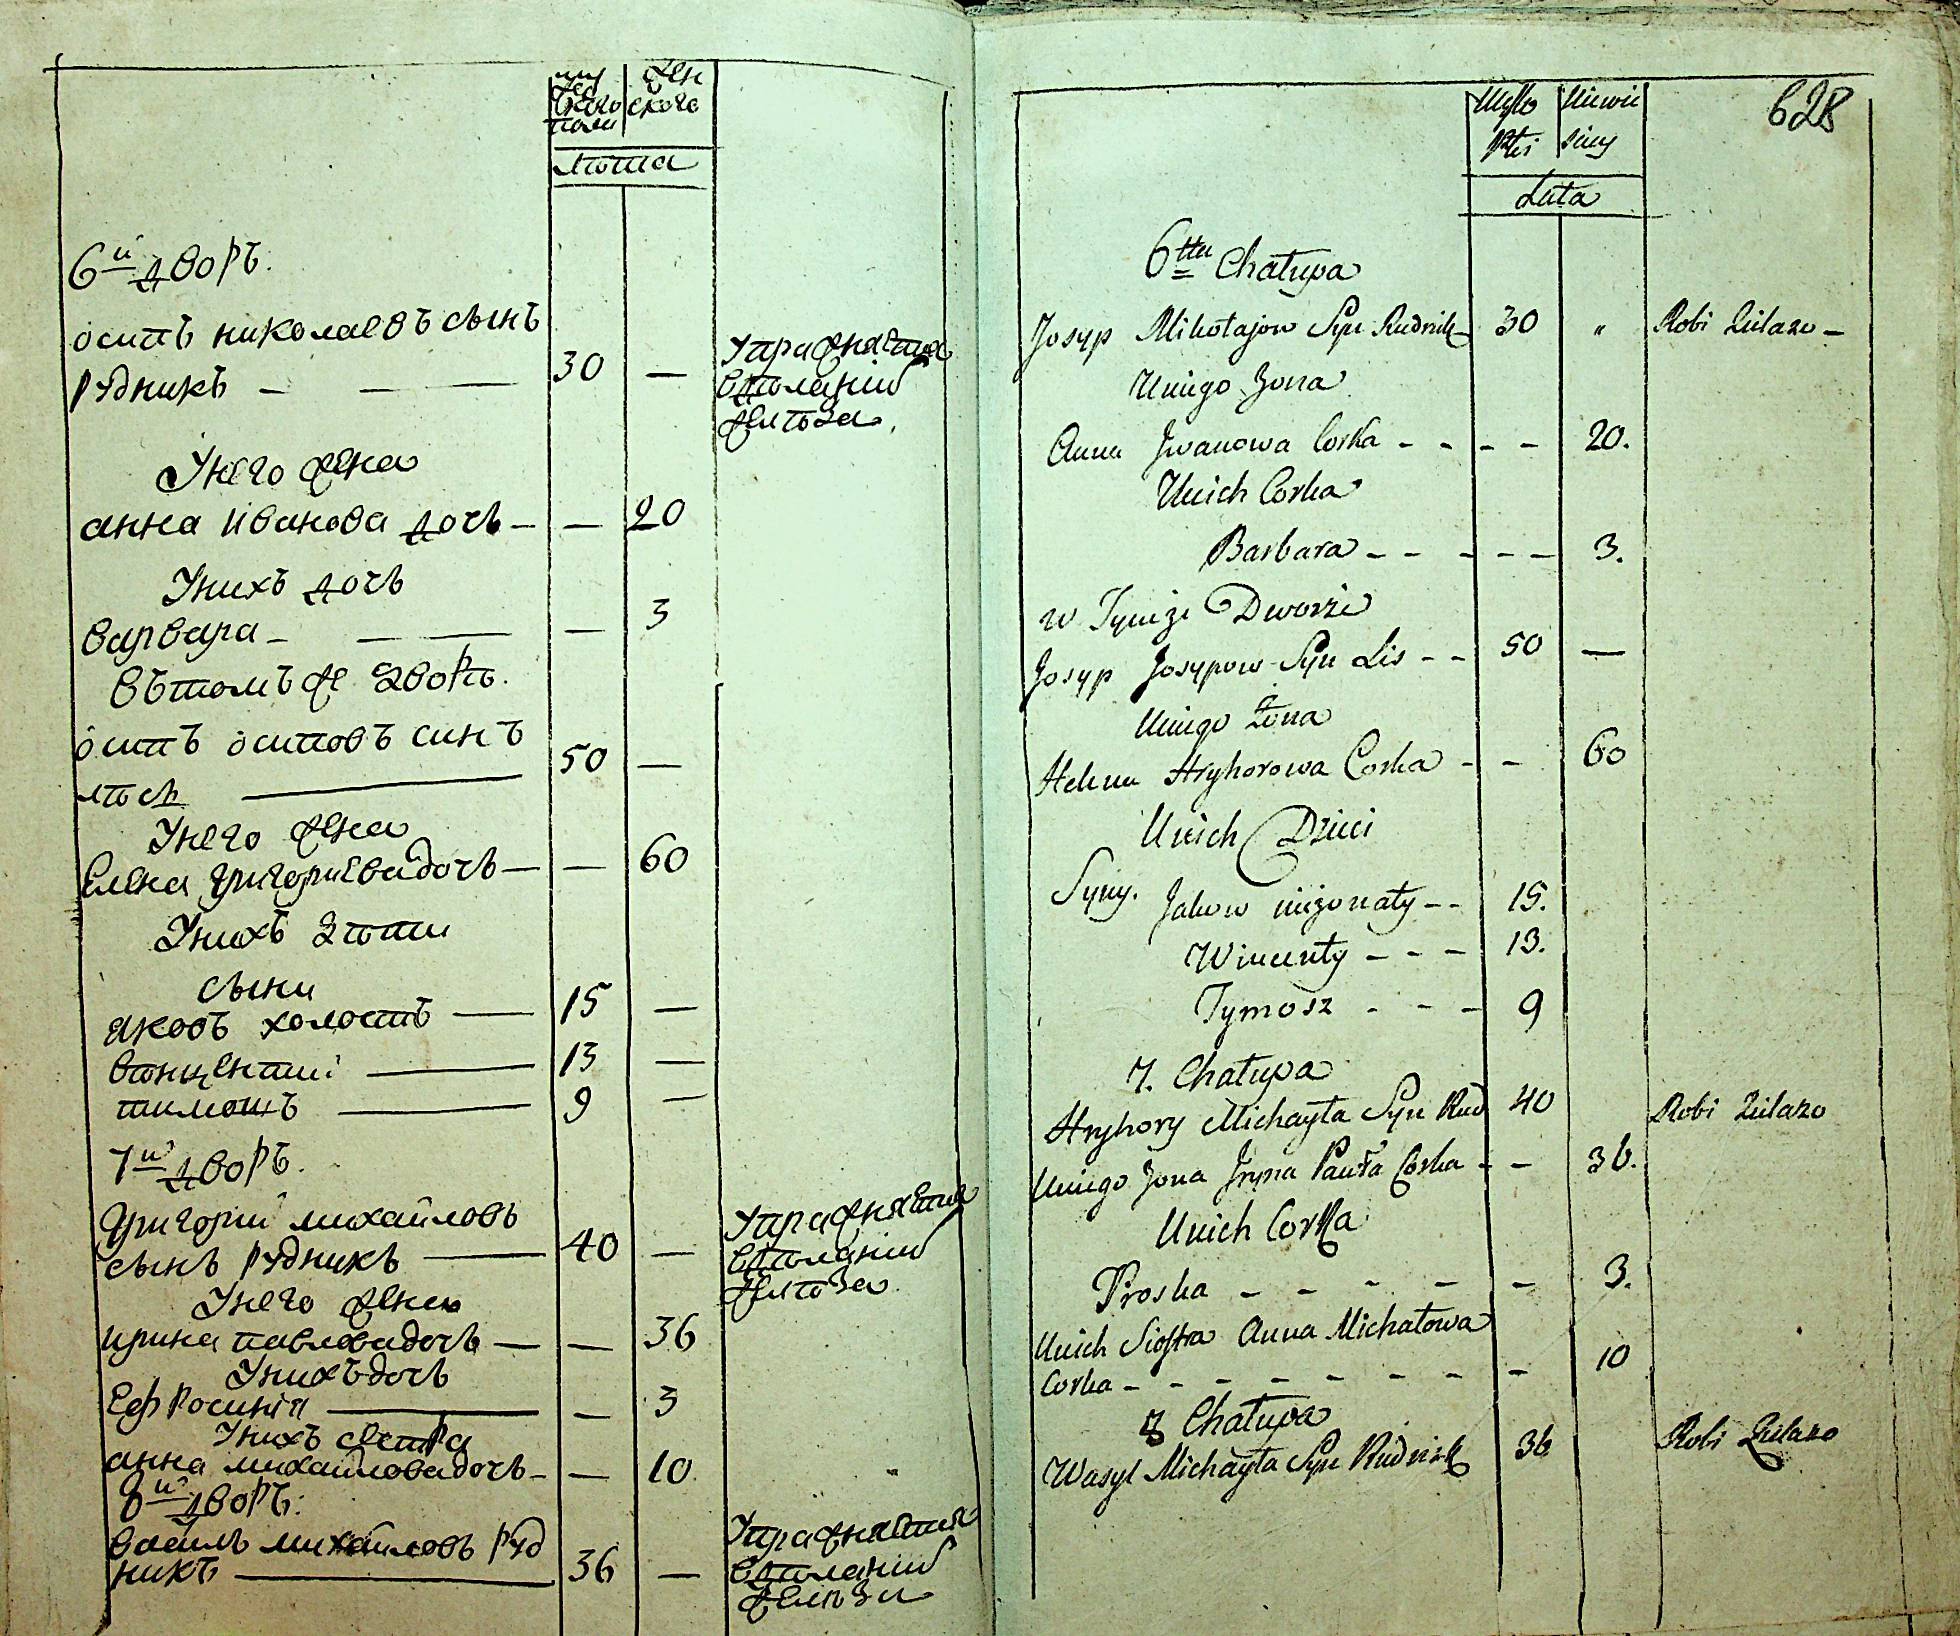 муж
ѣска
го
полу
жен
скаго
лѣта
6й дворъ.
осипъ николаевъ сынъ
рудникъ — — — 30 —
Упражняется
в дѣланіи
желѣза.
Унего жена
анна Иванова дочь — — 20
Унихъ дочь
варвара — — — — 3
вътомъ же дворѣ.
осипъ осиповъ синъ
лисъ — 50 —
Унего жена
Елена григориева дочь — — 60
Унихъ дѣти
сыни
яковъ холостъ — 15 —
вѣнцентий — 13 —
тимошъ — 9 —
7й дворъ.
Григорий михайловъ
сынъ рудникъ — 40 —
Упражняется
в дѣланіи
желѣза.
Унего жена
ирина павлова дочь — — 36
Унихъ дочь
Ефросинія — — 3
Унихъ сестра
анна михайлова дочь — — 10.
8й дворъ:
василь михайловъ руд
никъ — 36 —
Упражняется
в дѣланіи
желѣза
628
Męsko
Płci
Niewie
sciey
Lata
6tta Chałupa
Josyp Mikołajow Syn Rudnik 30 " Robi Żelazo —
Uniego Żona
Anna Jwanowa Corka - - - - 20.
Unich Corka
Barbara - - - - - 3.
w Tymże Dworze
Josyp Josypow Syn Lis - - 50 —
Uniego Żona
Helena Hryhorowa Corka - - 60
Unich Dzieci
Syny. Jakow nieżonaty - - 15.
Wincenty - - - 13.
Tymosz - - - 9
7. Chałupa
Hryhory Michayła Syn Rud 40 Robi Żelazo
Uniego Żona Jryna Pawła Corka - - 36.
Unich Corka
Proska - - - - - - 3.
Unich Siostra Anna Michałowa
Corka - - - - - - - - 10
8 Chałupa
Wasyl Michayła Syn Rudnik 36 Robi Żelazo